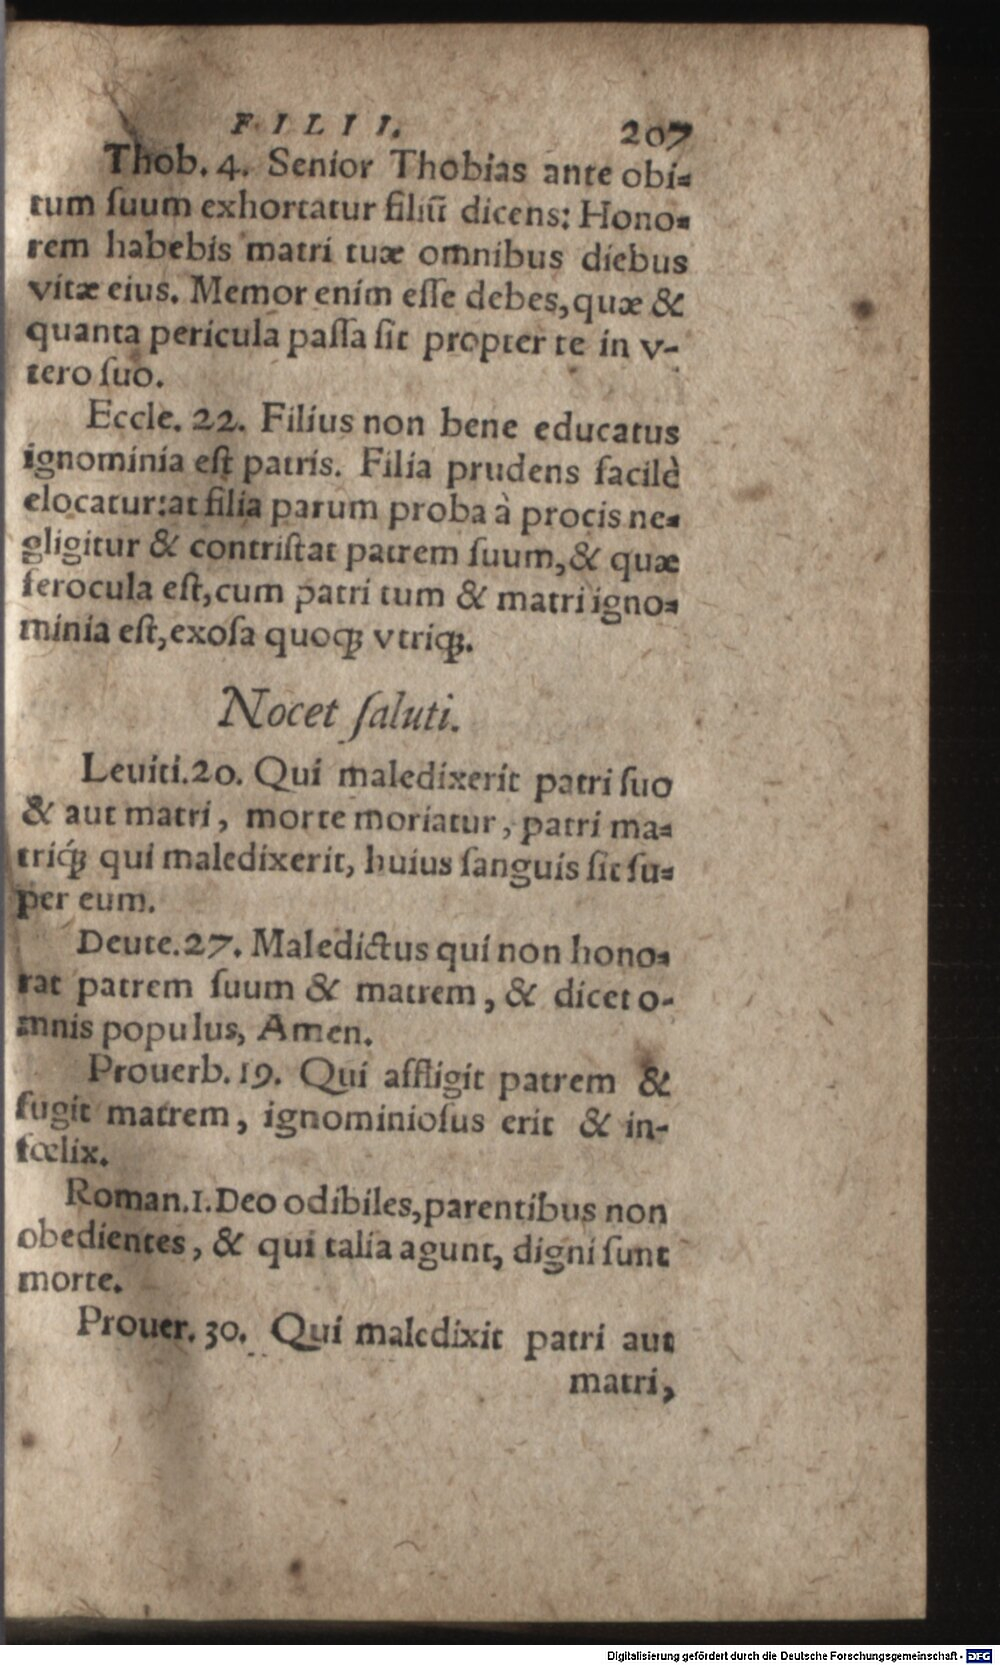 FILII. 207
Thob. 4. Senior Thobias ante obi-
tum ſuum exhortatur filiū dicens: Hono-
rem habebis matri tuæ omnibus diebus
vitæ eius. Memor enim eſſe debes, quæ &
quanta pericula paſſa ſit propter te in v-
tero ſuo.
Eccle. 22. Filius non bene educatus
ignominia eſt patris. Filia prudens facilè
elocatur: at filia parum proba à procis ne-
gligitur & contriſtat patrem ſuum, & quæ
ferocula eſt, cum patri tum & matri igno-
minia eſt, exoſa quoq; vtriq;.
Nocet ſaluti.
Leuiti. 20. Qui maledixerit patri ſuo
& aut matri, morte moriatur, patri ma-
triq́; qui maledixerit, huius ſanguis ſit ſu-
per eum.
Deute. 27. Maledictus qui non hono-
rat patrem ſuum & matrem, & dicet o-
mnis populus, Amen.
Prouerb. 19. Qui affligit patrem &
fugit matrem, ignominioſus erit & in-
fœlix.
Roman. 1. Deo odibiles, parentibus non
obedientes, & qui talia agunt, digni ſunt
morte.
Prouer. 30. Qui maledixit patri aut
matri,
Digitalisierung gefördert durch die Deutsche Forschungsgemeinschaft - DFG